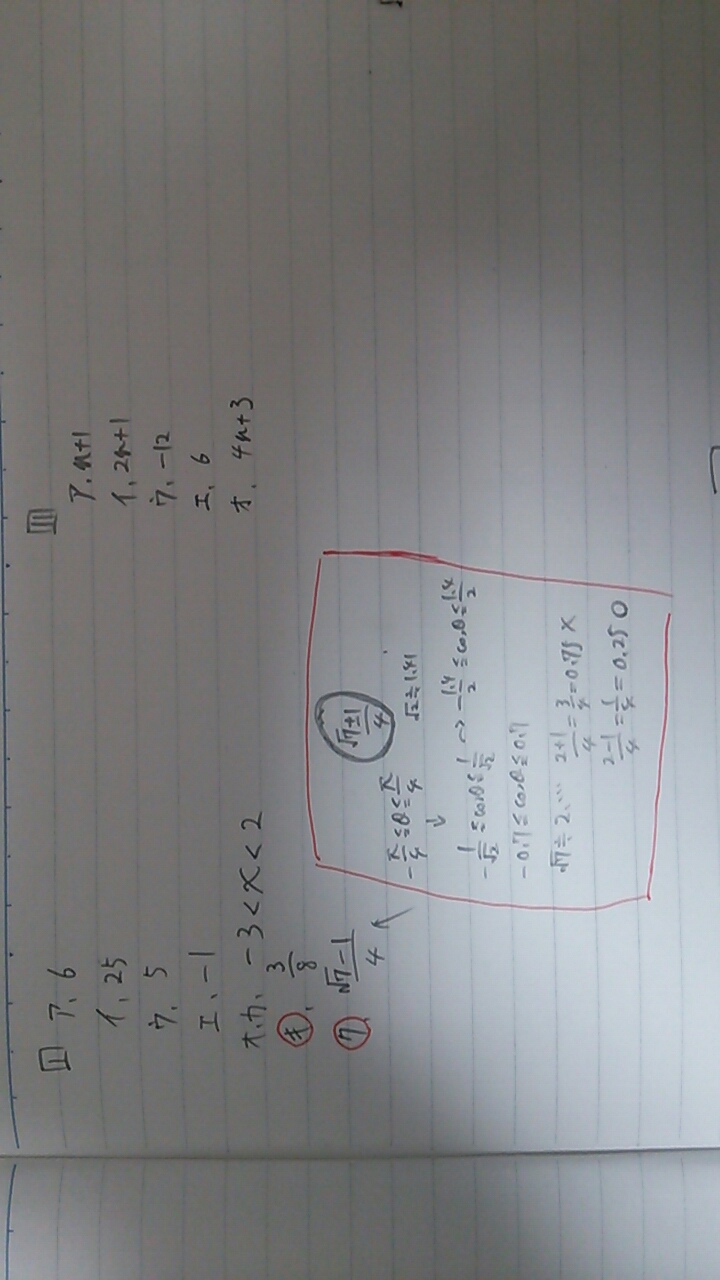 I ア、6
イ、25
ウ、5
エ、-1
オ.カ、-3<x<2
キ、3/8
ク、(√7-1)/4
(√7±1)/4
-π/4≦θ≦π/4 √2≒1.41
↓
-1/√2≦cosθ≦1/√2 → -1.4/2≦cosθ≦1.4/2
-0.7≦cosθ≦0.7
√7≒2.… (2+1)/4=3/4=0.75 ×
(2-1)/4=1/4=0.25 ○
II
ア、n+1
イ、2n+1
ウ、-12
エ、6
オ、4n+3